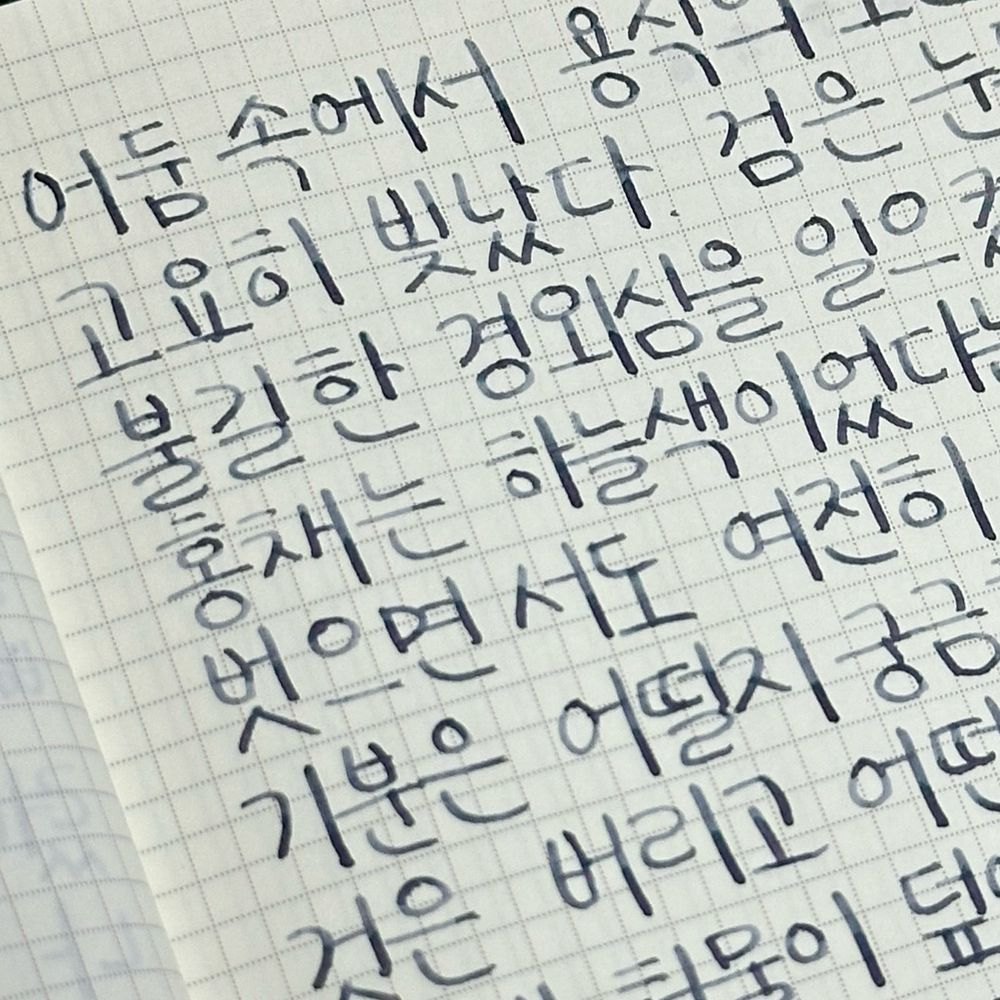 어둠 속에서 용식의
고요히 빛났다. 검은
불길한 경외심을 일으
홍채는 하늘색이었다
벗으면서도 여전히
기분은 어떨지 궁금
것은 버리고
허물이